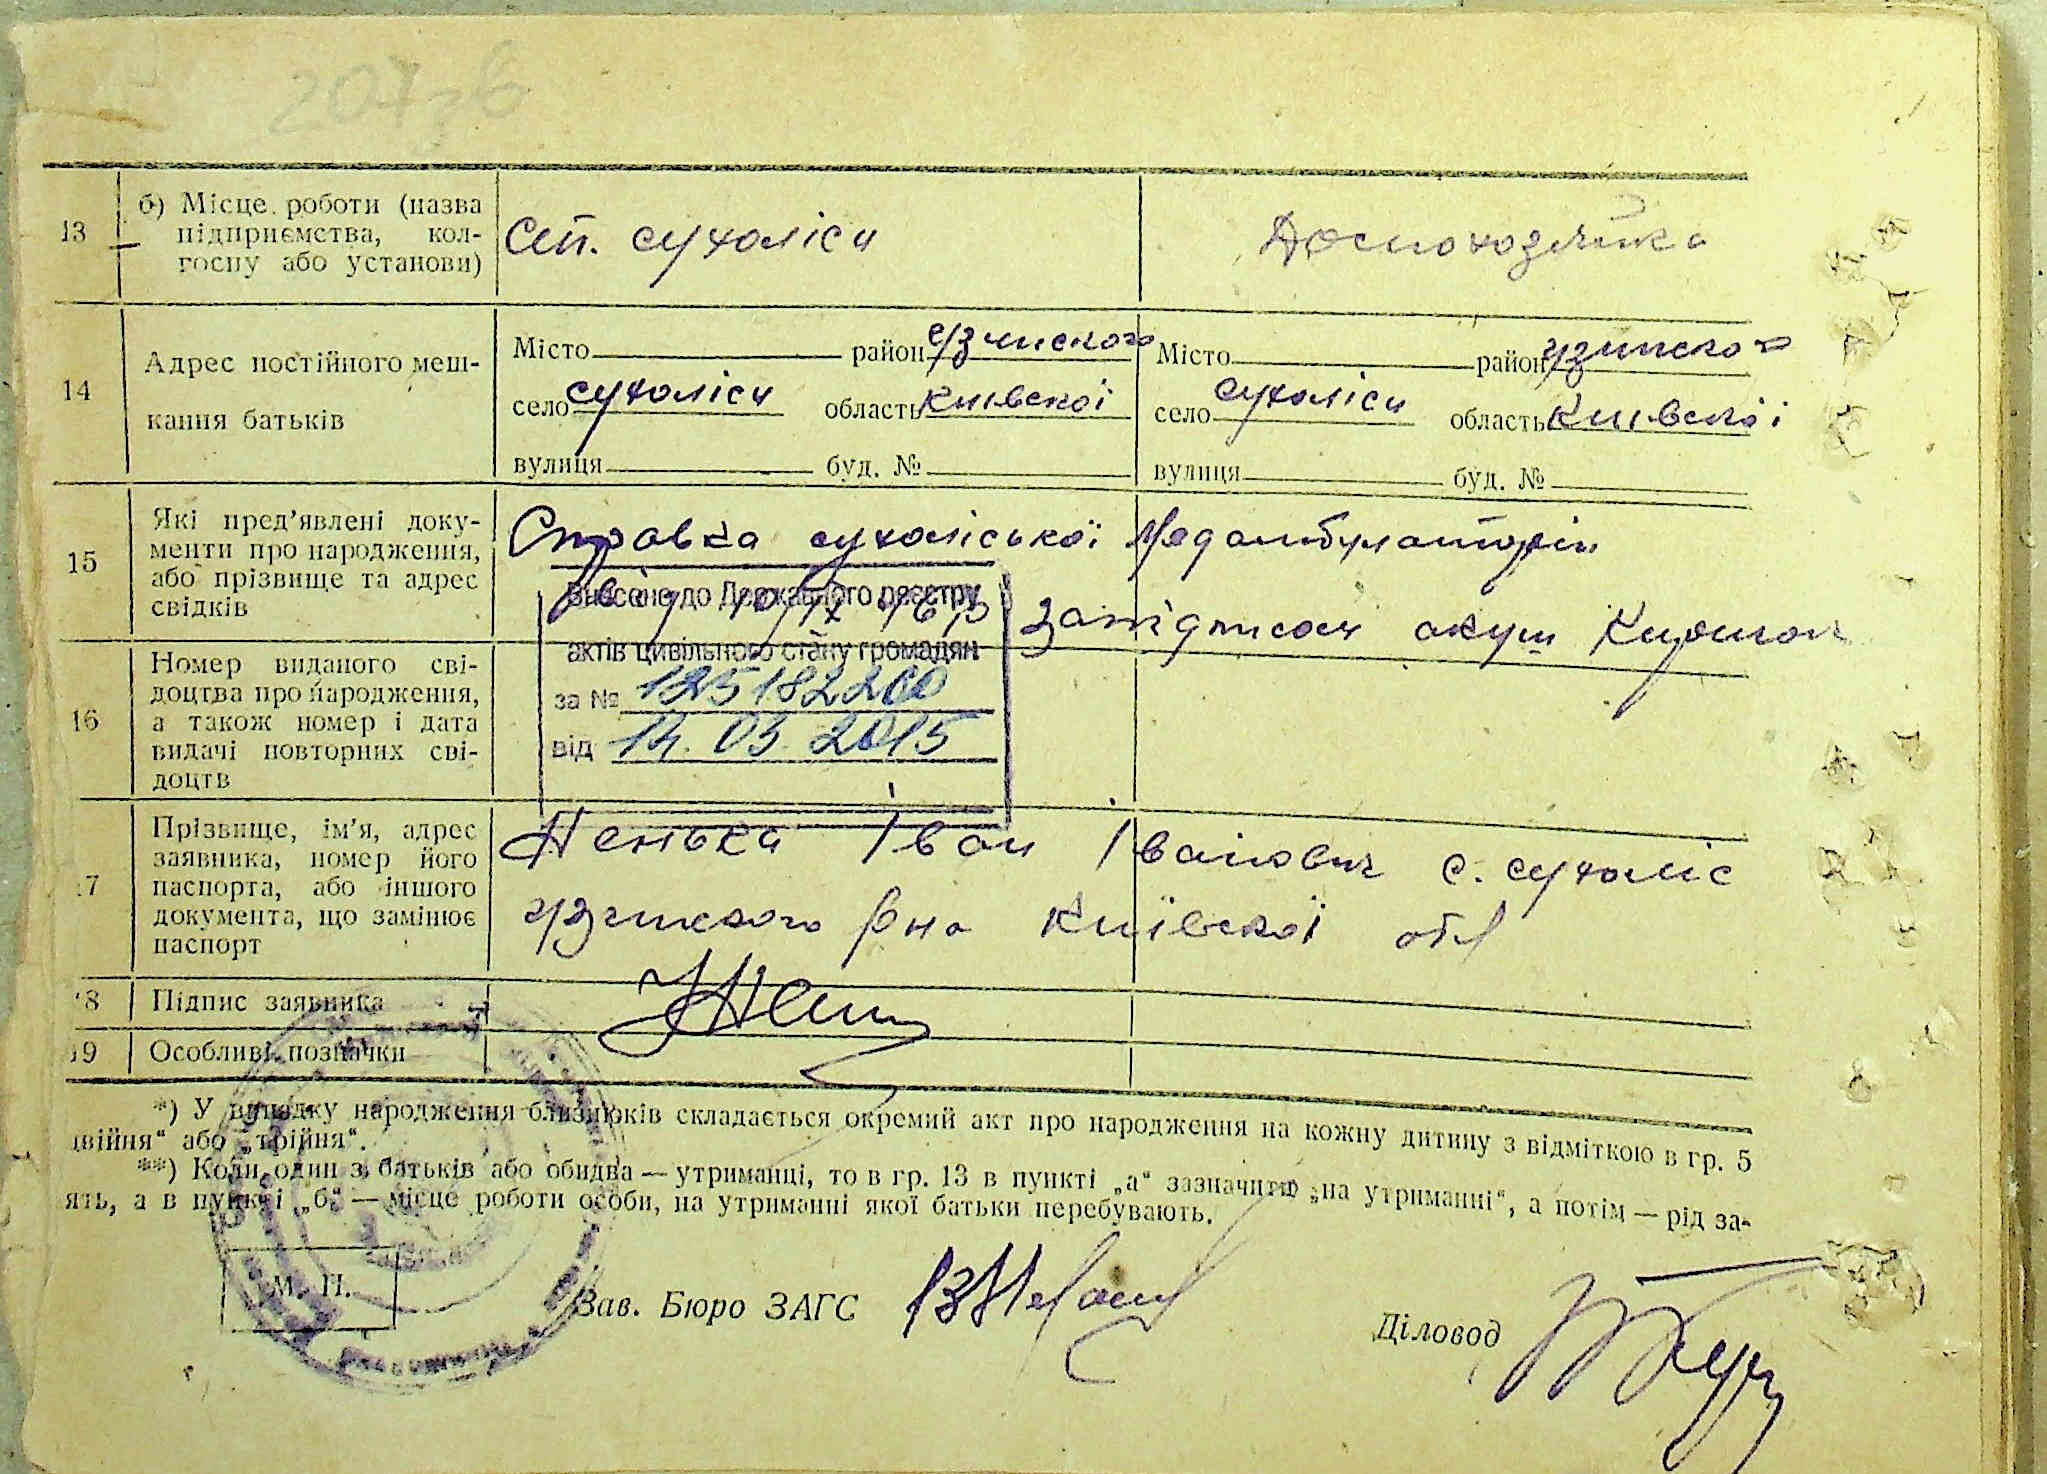 13
б) Місце роботи (назва
підприємства, кол-
госпу або установи)
сіп. сухоліси
Домохозяйка
14
Адрес постійного меш-
кання батьків
Місто район узинского
село сухоліси область Киівскоі
вулиця буд. №
Місто район узинского
село сухоліси область Киівскоі
вулиця буд. №
15
Які пред'явлені доку-
менти про народження,
або прізвище та адрес
свідків
Справка сухоліської Медамбулаторіи
за підписом акуш
Внесено до Державного реєстру
актів цивільного стану громадян
за №
від 14. 03. 2015
16
Номер виданого сві-
доцтва про народження,
а також номер і дата
видачі повторних сві-
доцтв
17
Прізвище, ім'я, адрес
заявника, номер його
паспорта, або іншого
документа, що замінює
паспорт
Ненька Іван Іванович с. сухоліс
узинсково рна Киівскоі обл
18
Підпис заявника
19
Особливі позначки
*) У випадку народження близнюків складається окремий акт про народження на кожну дитину з відміткою в гр. 5
двійня“ або „трійня“.
**) Коли один з батьків або обидва — утриманці, то в гр. 13 в пункті „а“ зазначити „на утриманні“, а потім — рід за-
ять, а в пункті „б“ — місце роботи особи, на утриманні якої батьки перебувають.
М. П.
Зав. Бюро ЗАГС
Діловод